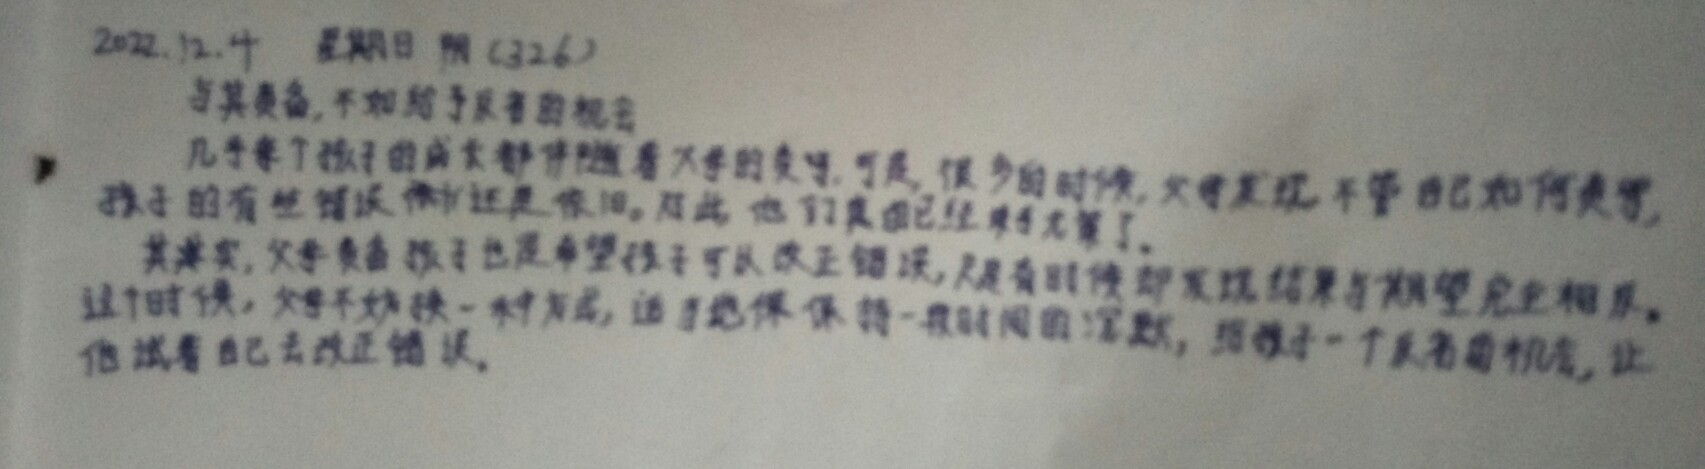 2022.12.4 星期日 阴（326）
与其责备，不如给予反省的机会
几乎每个孩子的成长都伴随着父母的责骂，可是，很多的时候，父母发现，不管自己如何责骂，
孩子的有些错误 还是依旧。对此，他们真的已经束手无策了。
其实，父母责备孩子也是希望孩子可以改正错误，只是有时候却发现结果与期望完全相反。
这个时候，父母不妨换一种方式，适当 保持一段时间的沉默，给孩子一个反省的机会，让
他试着自己去改正错误。